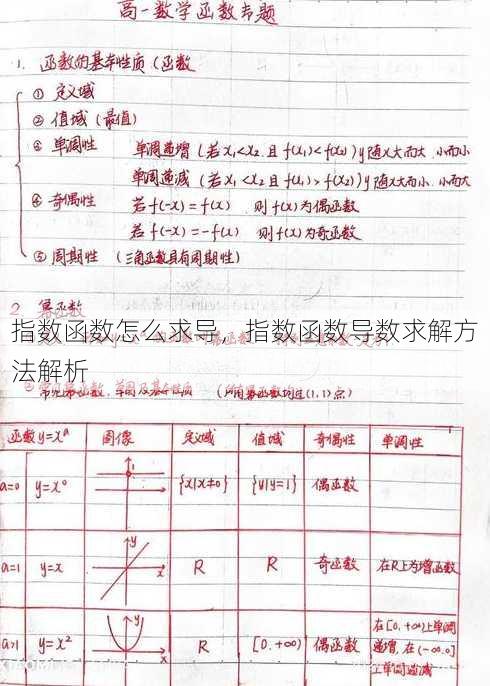 高一数学函数专题
1. 函数的基本性质（函数
① 定义域
② 值域（最值）
③ 单调性 单调递增（若x₁<x₂ 且 f(x₁)<f(x₂)）y随x大而大、小而小
单调递减（若x₁<x₂ 且 f(x₁)>f(x₂)）y随x大而小、小而大
④ 奇偶性 若f(-x)=f(x) 则f(x)为偶函数
若f(-x)=-f(x) 则f(x)为奇函数
⑤ 周期性 （三角函数具有周期性）
2 幂函数
指数函数怎么求导，指数函数导数求解方
法解析
常见幂函数、草图及基本性质 （所有幂函数均过(1,1)点）
函数y=xᵃ 图像 定义域 值域 奇偶性 单调性
a=0 y=x⁰ 1 {x|x≠0} {y|y=1} 偶函数
a=1 y=x y x R R 奇函数 在R上为增函数
a>1 y=x² y x R [0,+∞) 偶函数 在[0,+∞)上单调
递增,在(-∞,0]
上单调递减